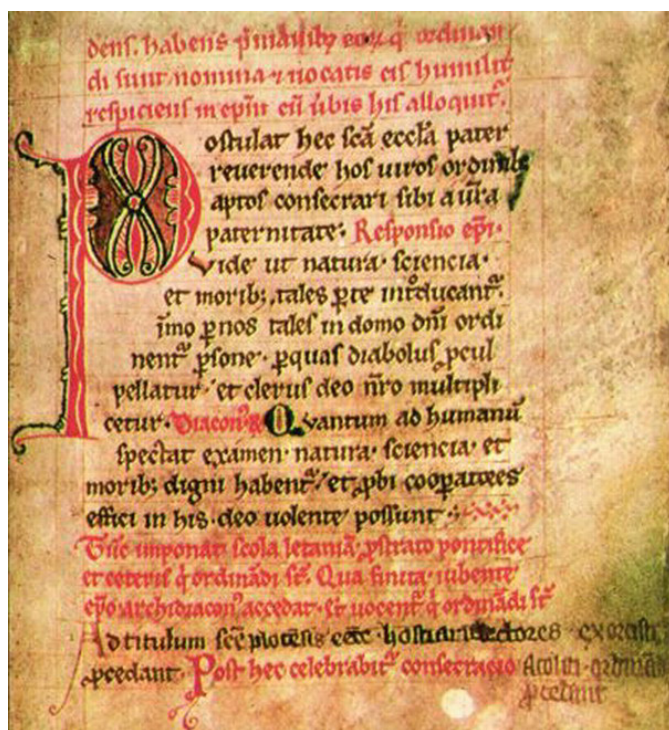 dens. habens p̄ manib; eoꝝ q̇ ordinan
di sunt nomina ⁊ uocatis eis humilit̾
respiciens in ep̄m cū ūbis his alloquit̾.
Postulat hec sc̄a eccl̄a pater
reuerende hos uiros ordini
aptos consecrari sibi a ūr̄a
paternitate. Responsio ep̄i.
Vide ut natura. sciencia.
et morib; .tales ꝑ te int̊ducant̾.
īmo ꝑ nos tales in domo dn̄i ordi
nent̾ ꝑsone. ꝑ quas diabolus ꝓcul
pellatur. et clerus deo nr̄o multipli
cetur. Diacon⁹ Quantum ad humanū
spectat examen. natura. sciencia. et
morib; digni habent̾. et ꝓbi coopatores
effici in his. deo uolente possunt.
Tūc imponat scola letaniā. ꝓstrato pontifice
et ceteris q̇ ordinādi st̄. Qua finita. iubente
ep̄o. archidiacon⁹ accedat. et uocent̾ q̇ ordinādi st̄
Ad titulum sc̄e hostiarii lectores exorcis
ꝓcedant. Post hec celebrabit̾ consecracio Acoliti ordinandi
ꝓcedant